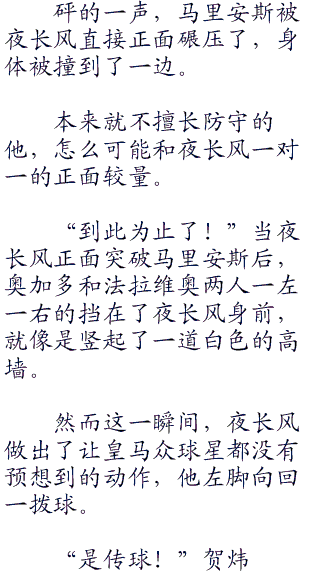 砰的一声，马里安斯被
夜长风直接正面碾压了，身
体被撞到了一边。
本来就不擅长防守的
他，怎么可能和夜长风一对
一的正面较量。
“到此为止了！”当夜
长风正面突破马里安斯后，
奥加多和法拉维奥两人一左
一右的挡在了夜长风身前，
就像是竖起了一道白色的高
墙。
然而这一瞬间，夜长风
做出了让皇马众球星都没有
预想到的动作，他左脚向回
一拨球。
“是传球！”贺炜